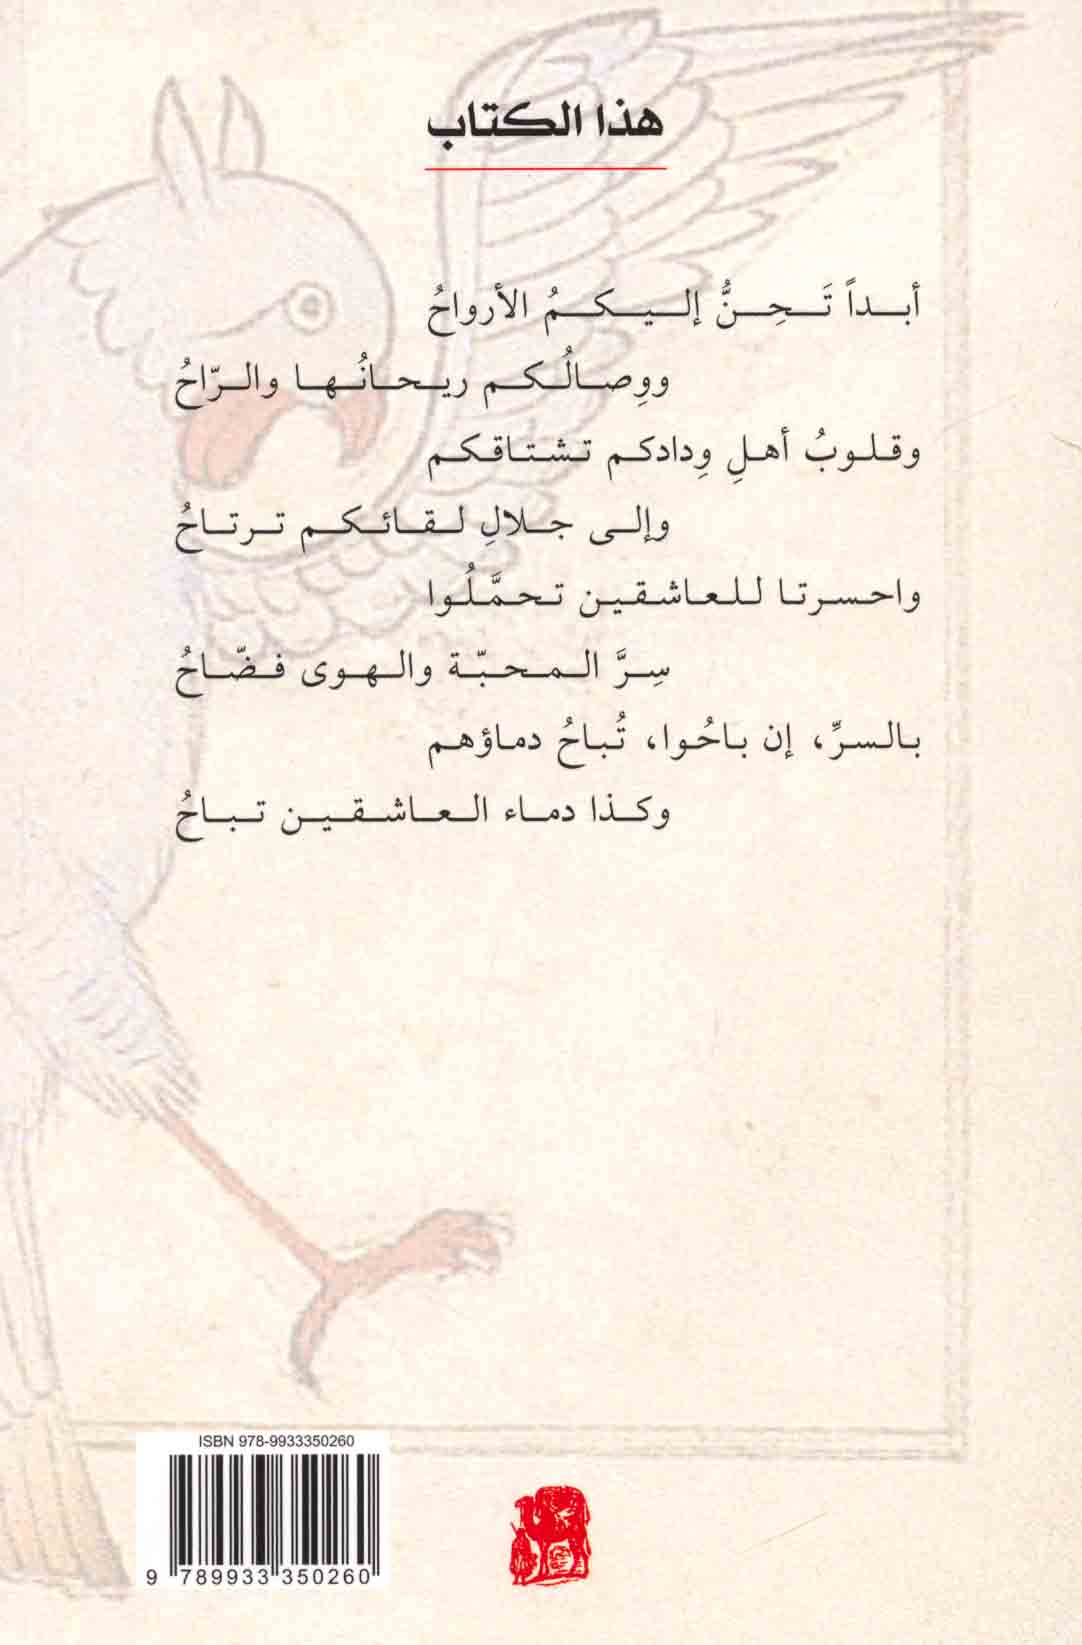 هذا الكتاب
أبداً تَحِنُّ إليكمُ الأرواحُ
ووِصالُكم ريحانُها والرّاحُ
وقلوبُ أهلِ وِدادكم تشتاقكم
وإلى جلالِ لقائكم ترتاحُ
واحسرتا للعاشقين تحمَّلُوا
سِرَّ المحبّة والهوى فضّاحُ
بالسرِّ، إن باحُوا، تُباحُ دماؤهم
وكذا دماء العاشقين تباحُ
ISBN 978-9933350260
9 789933 350260